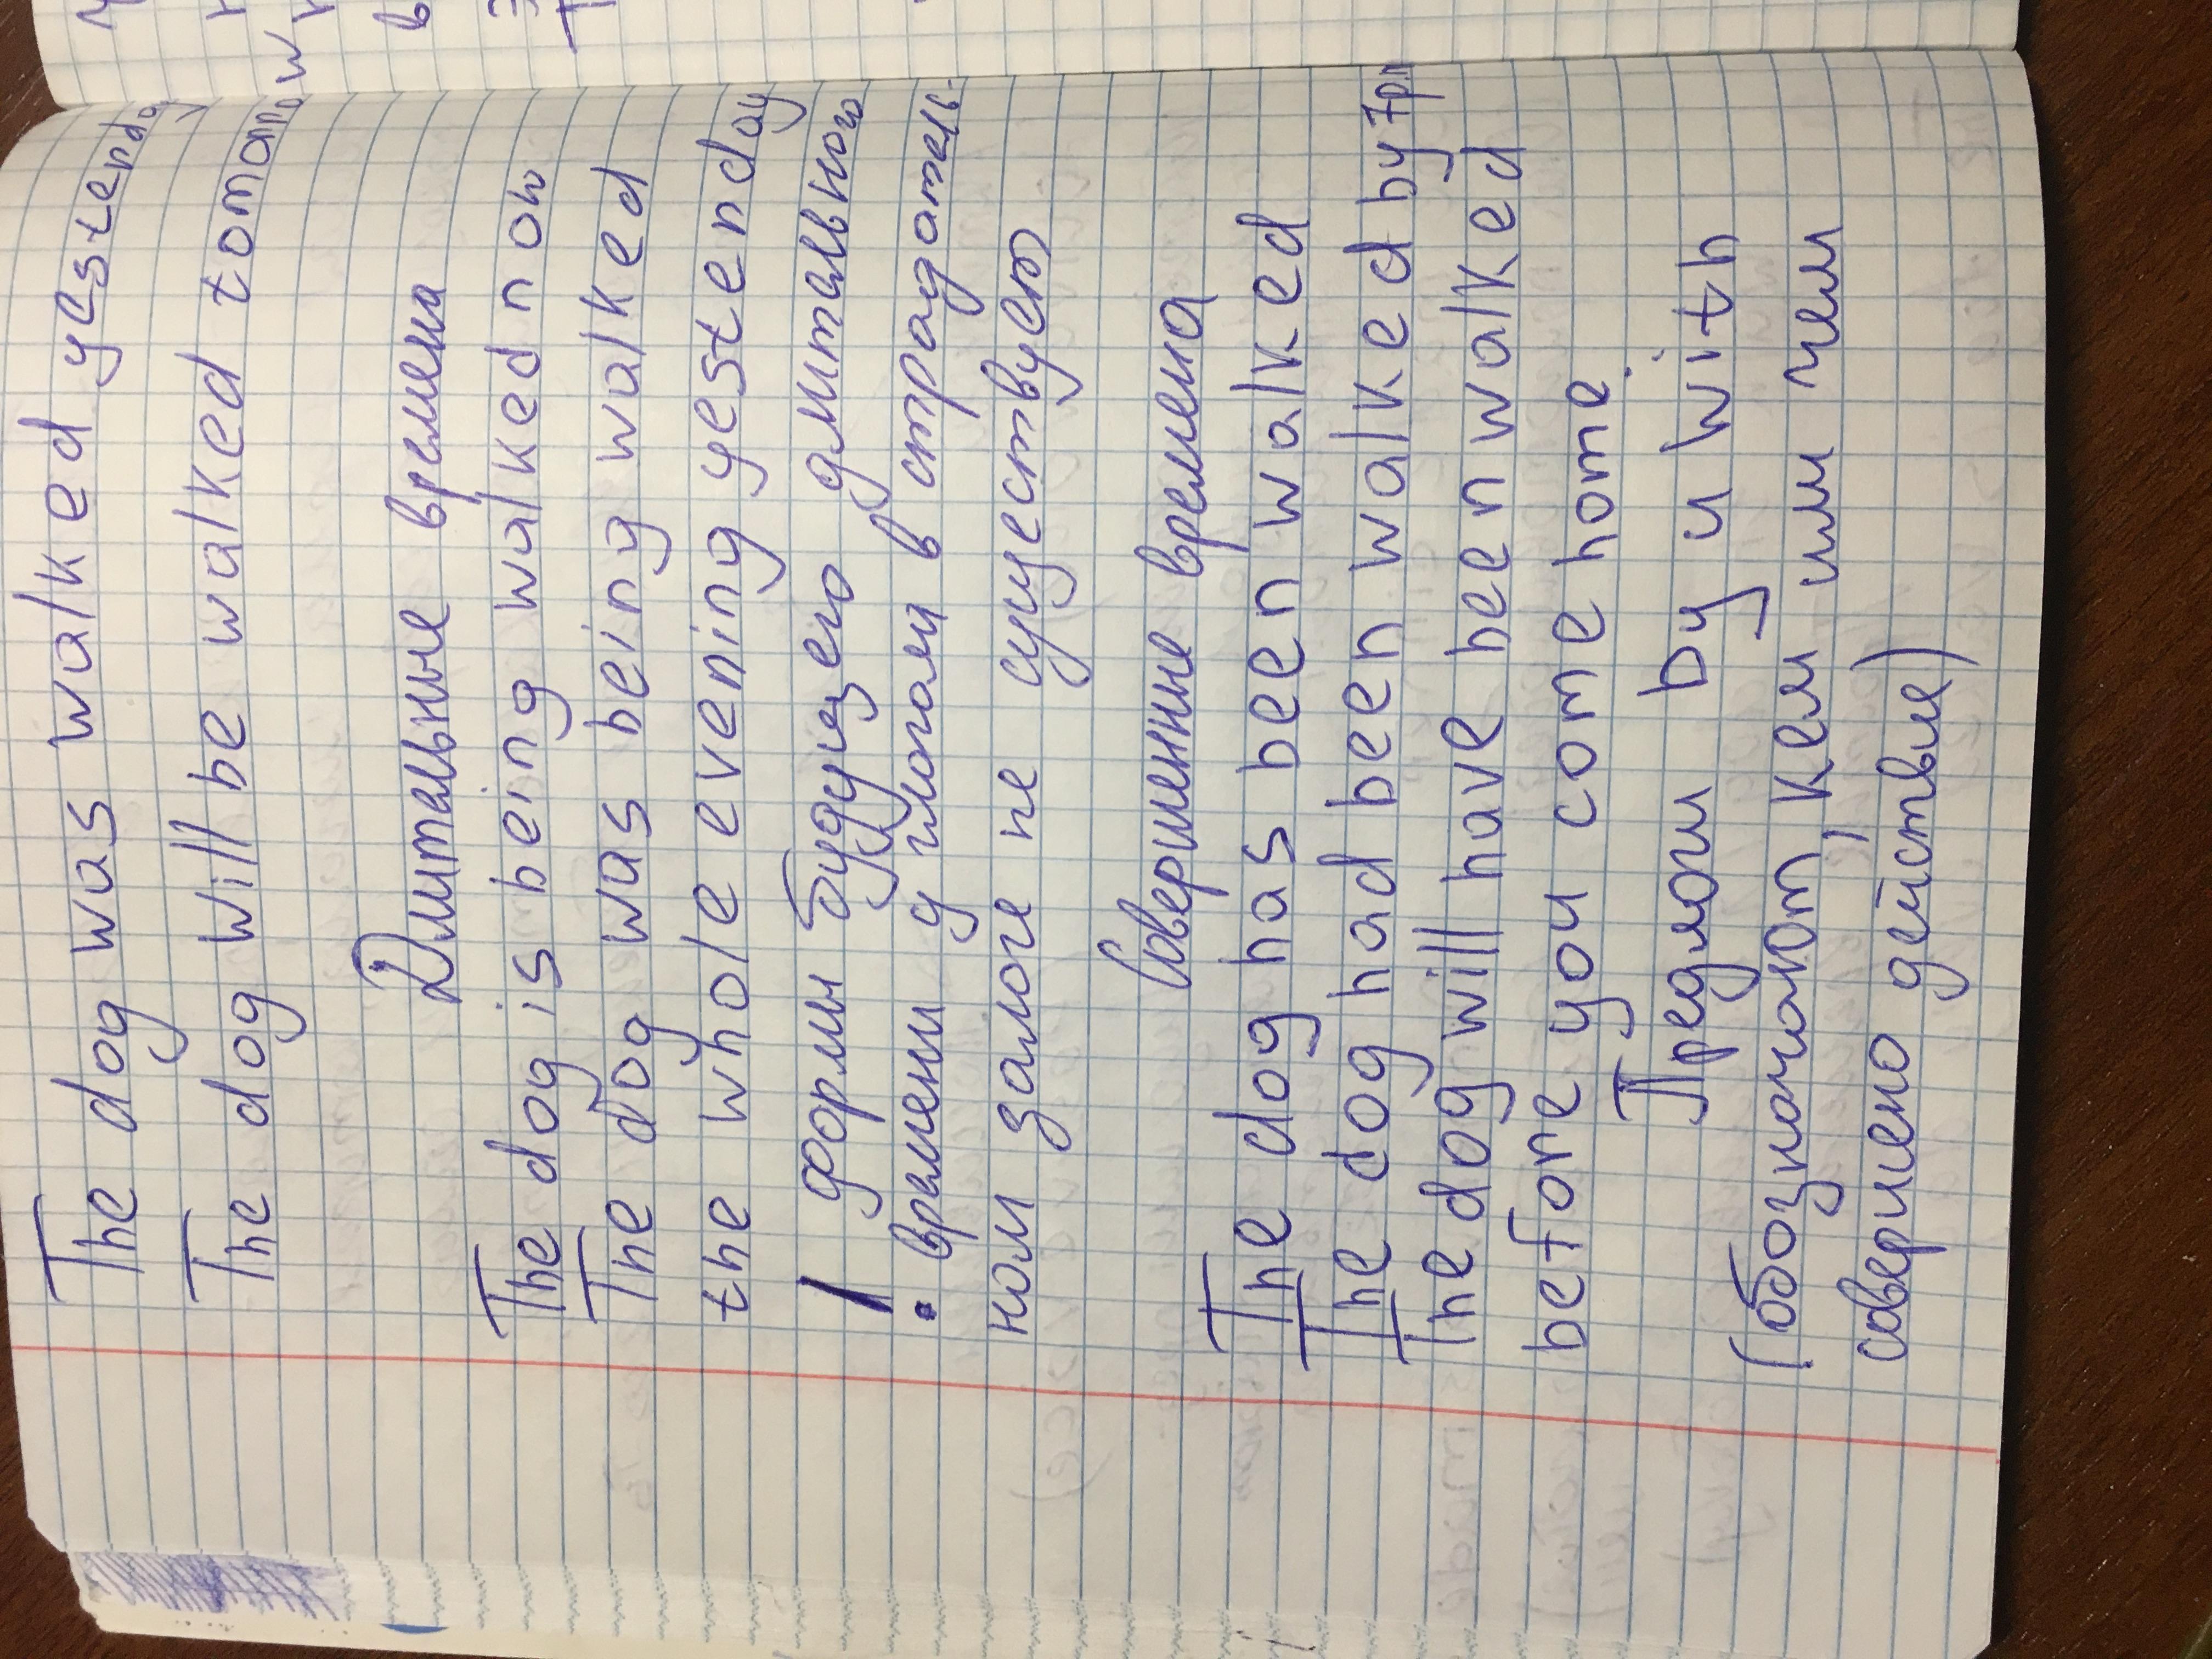 The dog was walked yesterday
The dog will be walked tomorrow
Длительные времена
The dog is being walked now
The dog was being walked
the whole evening yesterday
! формы будущего длитального
времени у глогаги в страдатель-
ном залоге не существует
Совершенние времена
The dog has been walked
The dog had been walked by 7p.m
The dog will have been walked
before you come home
Предлоги by и with
(обозначают, кем или чем
совершено действие)